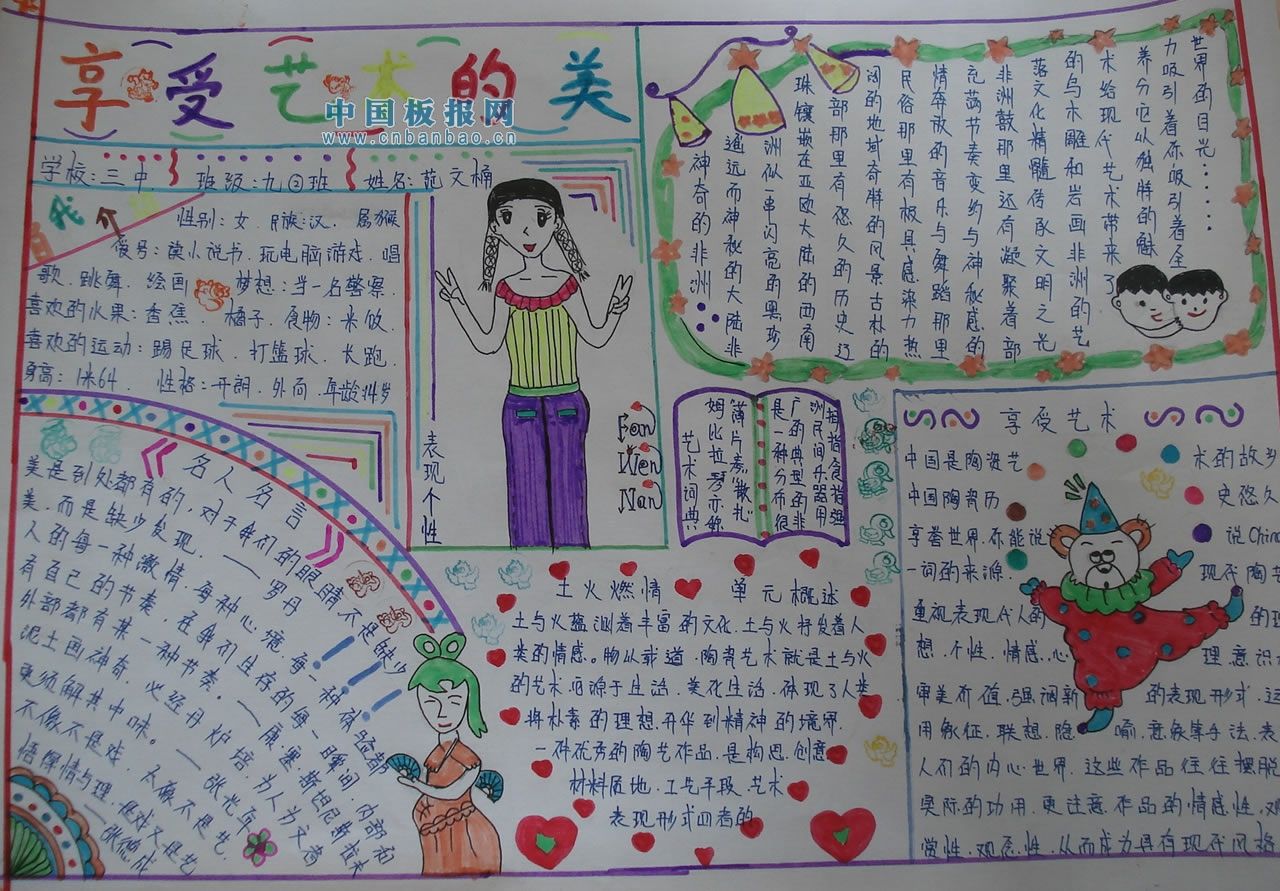 享受艺术的美
中国板报网
www.cnbanbao.cn
学校:三中 班级:九②班 姓名:范文楠
我介绍
性别:女.民族:汉.属猴
爱号:读小说书.玩电脑游戏.唱
歌.跳舞.绘画 梦想:当一名警察.
喜欢的水果:香蕉.橘子.食物:米饭.
喜欢的运动:踢足球.打篮球.长跑.
身高:1米64. 性格:开朗.外向.年龄14岁
表现个性
Fan
Wen
Nan
神奇的非洲
遥远而神秘的大陆非
洲似一串闪亮的黑珍
珠镶嵌在亚欧大陆的西南
部那里有悠久的历史辽
阔的地域奇特的风景古朴的
民俗那里有极具感染力热
情奔放的音乐与舞蹈那里
充满节奏变幻与神秘感的
非洲鼓那里还有凝聚着部
落文化精髓传承文明之光
的乌木雕和岩画非洲的艺
术给现代艺术带来了
养分它以独特的魅
力吸引着你吸引着全
世界的目光……
《名人名言》
美是到处都有的,对于我们的眼睛.不是缺少
美.而是缺少发现.——罗丹
人的每一种激情,每种心境.每一种体验都
有自己的节奏.在我们生存的每一瞬间.内部和
外部都有某一种节奏。——康塞斯坦尼斯拉夫
泥土画神奇.必经丹炉培.为人为文者
更须解其中味。——张光年
不像不是戏.太像不是艺.
悟得情与理.是戏又是艺
——张德成
艺术词典
姆比拉琴亦称
"薄片""散扎"
是一种分布很
广的典型的非
洲民间乐器用
拇指食指强
土火燃情 单元概述
土与火蕴涵着丰富的文化.土与火抒发着人
类的情感。物以载道.陶瓷艺术就是土与火
的艺术.它源于生活.美化生活.体现了人类
将朴素的理想.升华到精神的境界.
一件优秀的陶艺作品.是构思.创意
材料质地.工艺手段.艺术
表现形式四者的
享受艺术
中国是陶瓷艺术的故乡
中国陶瓷历史悠久
享誉世界.你能说说China
一词的来源. 现代陶艺
重视表现代人的 的理
想.个性.情感.心理.意识
审美价值.强调新的表现形式.这
用象征.联想.隐喻.意象等手法.表
人们的内心世界.这些作品往往摆脱
实际的功用.更注意作品的情感性.观
赏性.观念性.从而成为具有现代风格